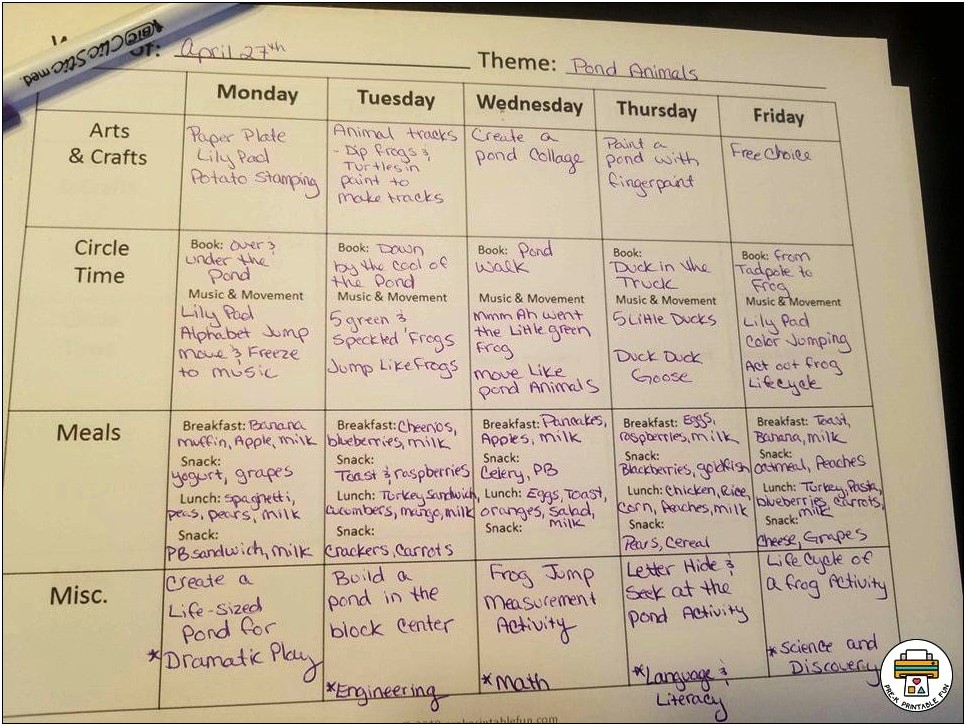 BIC Clic Stic med
W of: April 27th
Theme: Pond Animals
Monday
Tuesday
Wednesday
Thursday
Friday
Arts
& Crafts
Paper Plate
Lily Pad
Potato Stamping
Animal tracks
- Dip frogs &
Turtles in
paint to
make tracks
Create a
pond collage
Paint a
pond with
fingerpaint
Free Choice
Circle
Time
Book: Over &
under the
Pond
Music & Movement
Lily Pad
Alphabet Jump
Move & Freeze
to music
Book: Down
by the cool of
the Pond
Music & Movement
5 green &
Speckled Frogs
Jump Like Frogs
Book: Pond
Walk
Music & Movement
Mmm Ah went
the Little green
frog
move Like
pond Animals
Book:
Duck in the
Truck
Music & Movement
5 Little Ducks
Duck Duck
Goose
Book: From
Tadpole to
Frog
Music & Movement
Lily Pad
Color Jumping
Act out frog
Lifecycle
Meals
Breakfast: Banana
muffin, Apple, milk
Snack:
yogurt, grapes
Lunch: Spaghetti,
peas, pears, milk
Snack:
PB sandwich, milk
Breakfast: Cheerios,
blueberries, milk
Snack:
Toast & raspberries
Lunch: Turkey sandwich,
cucumbers, mango, milk
Snack:
Crackers, Carrots
Breakfast: Panakes,
Apples, milk
Snack:
Celery, PB
Lunch: Eggs, Toast,
oranges, Salad,
milk
Snack:
Breakfast: Eggs,
raspberries, milk
Snack:
Blackberries, goldfish
Lunch: Chicken, Rice,
corn, Peaches, milk
Snack:
Pears, Cereal
Breakfast: Toast,
Banana, milk
Snack:
oatmeal, Peaches
Lunch: Turkey, Pasta,
blueberries, Carrots,
milk
Snack:
Cheese, Grapes
Misc.
Create a
Life-Sized
Pond for
*Dramatic Play
Build a
pond in the
block center
*Engineering
Frog Jump
Measurement
Activity
*Math
Letter Hide &
Seek at the
pond Activity
*Language &
Literacy
Life Cycle of
a frog Activity
*Science and
Discovery
PRE-K PRINTABLE FUN